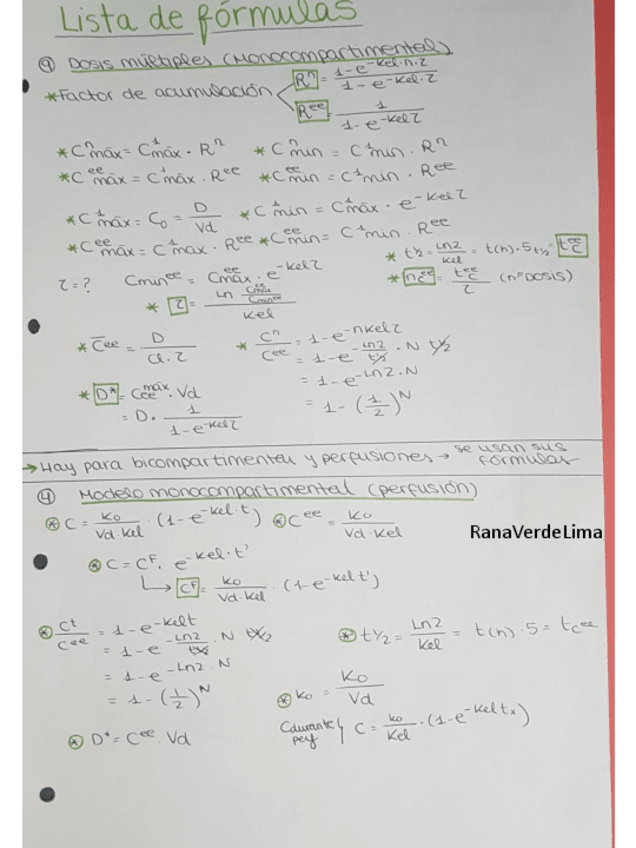 Lista de fórmulas
9) Dosis múltiples (Monocompartimental)
* Factor de acumulación < R^n = (1-e^-kel·n·τ)/(1-e^-kel·τ)
R^ee = 1/(1-e^-kelτ)
* C^n máx = C^1 máx · R^n * C^n min = C^1 min · R^n
* C^ee máx = C^1 máx · R^ee * C^ee min = C^1 min · R^ee
* C^1 máx = C0 = D/Vd * C^1 min = C^1 máx · e^-kelτ
* C^ee máx = C^1 max · R^ee * C^ee min = C^1 min · R^ee
* t½ = Ln2/kel = t(h) · 5 t½ = tc^ee
τ = ? Cmin^ee = C^ee máx · e^-kelτ * nc^ee = tc^ee/τ (nº DOSIS)
* τ = (Ln Cmáx^ee/Cmin^ee)/Kel
* C̄ee = D/(Cl·τ) * C^n/C^ee = 1-e^-nkelτ
= 1-e^-(Ln2/t½) · N t½
= 1-e^-Ln2·N
= 1-(1/2)^N
* D* = Cee^máx · Vd
= D · 1/(1-e^-kelτ)
→ Hay para bicompartimental y perfusiones → se usan sus fórmulas
4) Modelo monocompartimental (perfusión)
* C = K0/(Vd·Kel) · (1-e^-kel·t) * C^ee = K0/(Vd·Kel)
RanaVerdeLima
* C = C^F · e^-kel·t'
↳ C^F = K0/(Vd·Kel) · (1-e^-kelt')
* Ct/Cee = 1-e^-kelt
= 1-e^-(Ln2/t½) · N t½
= 1-e^-Ln2·N
= 1-(1/2)^N
* t½ = Ln2/Kel = t(h) · 5 = tc^ee
* K0 = K0/Vd
* D* = C^ee · Vd
Cdurante perf } C = K0/Kel · (1-e^-keltx)